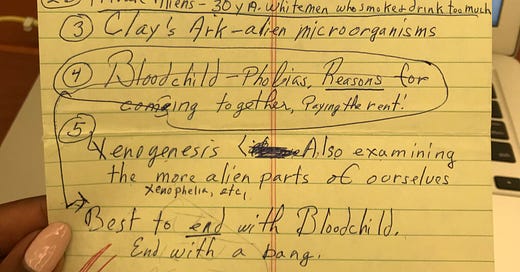 Aliens - 30 y A. Whitemen who smoke & drink too much
③ Clay's Ark - alien microorganisms
④ Bloodchild - Phobias, Reasons for
coming together, Paying the rent!
⑤ Xenogenesis Also examining
the more alien parts of ourselves
xenophelia, etc,
Best to end with Bloodchild.
End with a bang.